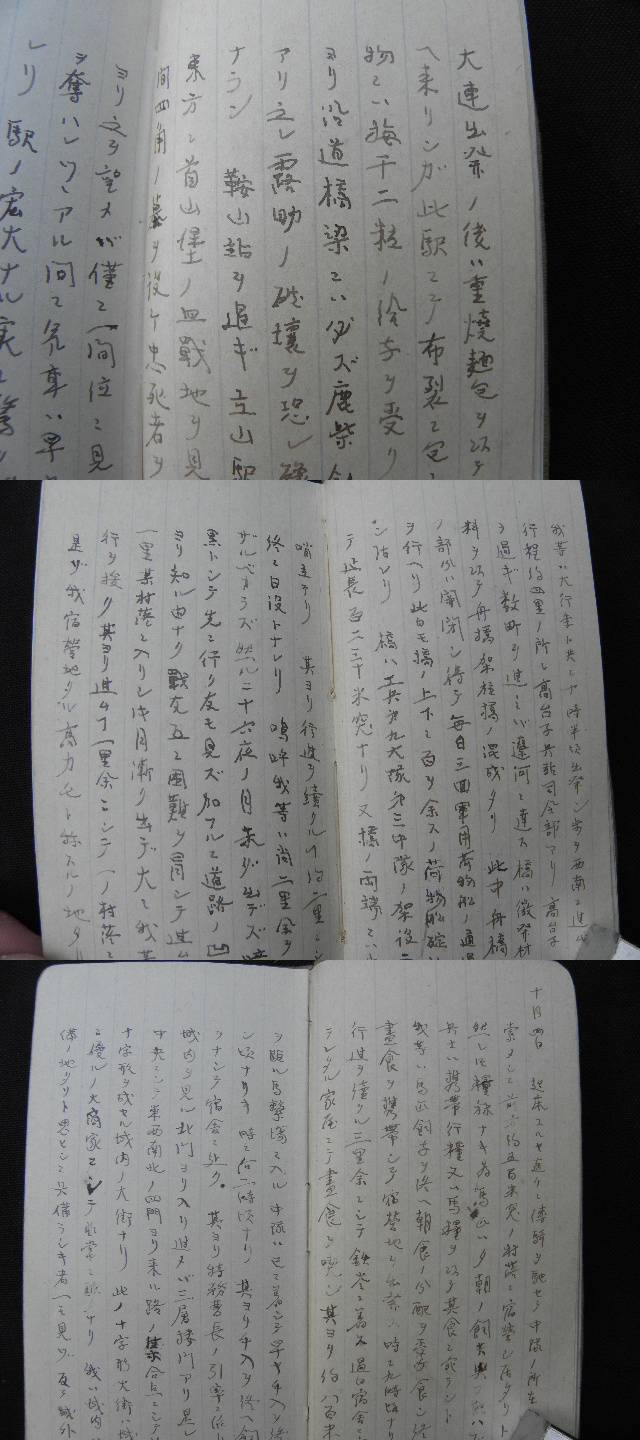 大連出発ノ後ハ重焼麺包ヲ以テ
ヘ来リシガ此駅ニテ布裂ニ包
物ニハ梅干二粒ノ給与ヲ受リ
ヨリ沿道橋梁ニハ必ズ鹿柴
アリ之レ露助ノ破壊ヲ恐レ
ナラン 鞍山站ヲ過ギ立山駅
東方ニ首山堡ノ血戦地ヲ見
間四角ノ墓ヲ設ケ忠死者ヲ
ヨリ之ヲ望メバ僅ニ一間位ニ見
ヲ奪ハレツヽアル間ニ汽車ハ早
レリ 駅ノ宏大ナル実ニ驚
我等ハ大行李ト共ニ 時半頃出発シ 西南ニ進
行程約四里ノ所ニ高台子兵站司令部アリ 高台子
ヲ過ギ数町ヲ進ミバ遼河ニ達ス 橋ハ徴発材
料ヲ以テ舟橋架柱橋ノ混成タリ 此中舟橋
ノ部分ハ開閉シ得テ毎日三回軍用荷物船ノ通過
ヲ行ヘリ此日モ橋ノ上下ニ百ヲ余スノ荷物船碇
シ居レリ 橋ハ工兵第九大隊第三中隊ノ架設ニ
テ延長百二三十米突ナリ 又橋ノ両端ニハ
哨兵アリ 其ヨリ行進ヲ続クル 約二里ニシ
終ニ日没トナレリ 嗚呼我等ハ尚二里余ヲ
ザルベカラズ 然ルニ十六夜ノ月未ダ出デズ
黒トシテ先ニ行ク友モ見ズ加フルニ道路ノ凹
ヨリ知ル由ナク 戦友互ニ困難ヲ冒シテ進ム
一里某村落ニ入リシ時月漸ク出デ大ニ我等
行ヲ援ク 其ヨリ進ム 一里余ニシテ一ノ村落ニ
是ガ我宿営地タル高力 ト称スルノ地タリ
十月四日 起床スルヤ直ニ伝騎ヲ馳セテ中隊ノ所在
索メシニ前方約五百米突ノ村落ニ宿営シ居タリト
然レ 糧秣ナキ為馬 朝ノ飼 与
兵士ハ携帯行糧又ハ馬糧ヲ以テ其食ニ充ラント
我等ハ馬匹飼与ヲ終ヘ朝食ノ分配ヲ受ケ食シ終
昼食ヲ携帯シテ宿営地ヲ出発ス 時ニ九時頃ナリ
行進ヲ続クル三里余ニシテ鉄嶺ニ着ス 宿舎ニ
テラレタル家屋ニテ昼食ヲ喫シ其ヨリ約八百米
ヲ臨ル馬撃場ニ入ル 中隊ハ已ニ着シテ早ヤ手入ヲ終
シ頃ナリキ 時ニ后二時頃ナリ 其ヨリ手入ヲ終ヘ飼
ヲナシテ宿舎ニ至ク。 其ヨリ特務曹長ノ引率ニ依リ
城内ヲ見ル北門ヨリ入リ進メバ三層楼門アリ是レ
中央ニシテ東西南北ノ四門ヨリ来ル路ノ集合点ニシテ
十字形ヲ成セル城内ノ大街ナリ 此ノ十字形大街ハ
ニ優ルノ大商家ニシテ非常ニ 我ハ城内
備ノ地タリト思ヒシニ兵備ラシキ者一モ見ズ 城外